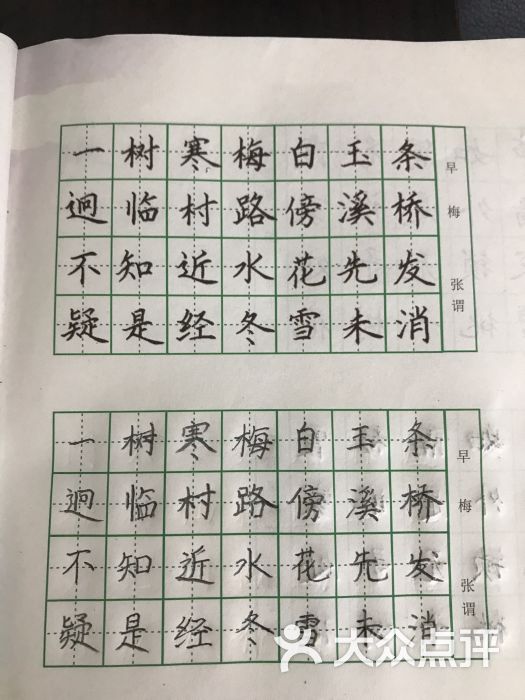 一树寒梅白玉条
迥临村路傍溪桥
不知近水花先发
疑是经冬雪未消
早梅
张谓
一树寒梅白玉条
迥临村路傍溪桥
不知近水花先发
疑是经冬雪未消
早梅
张谓
大众点评